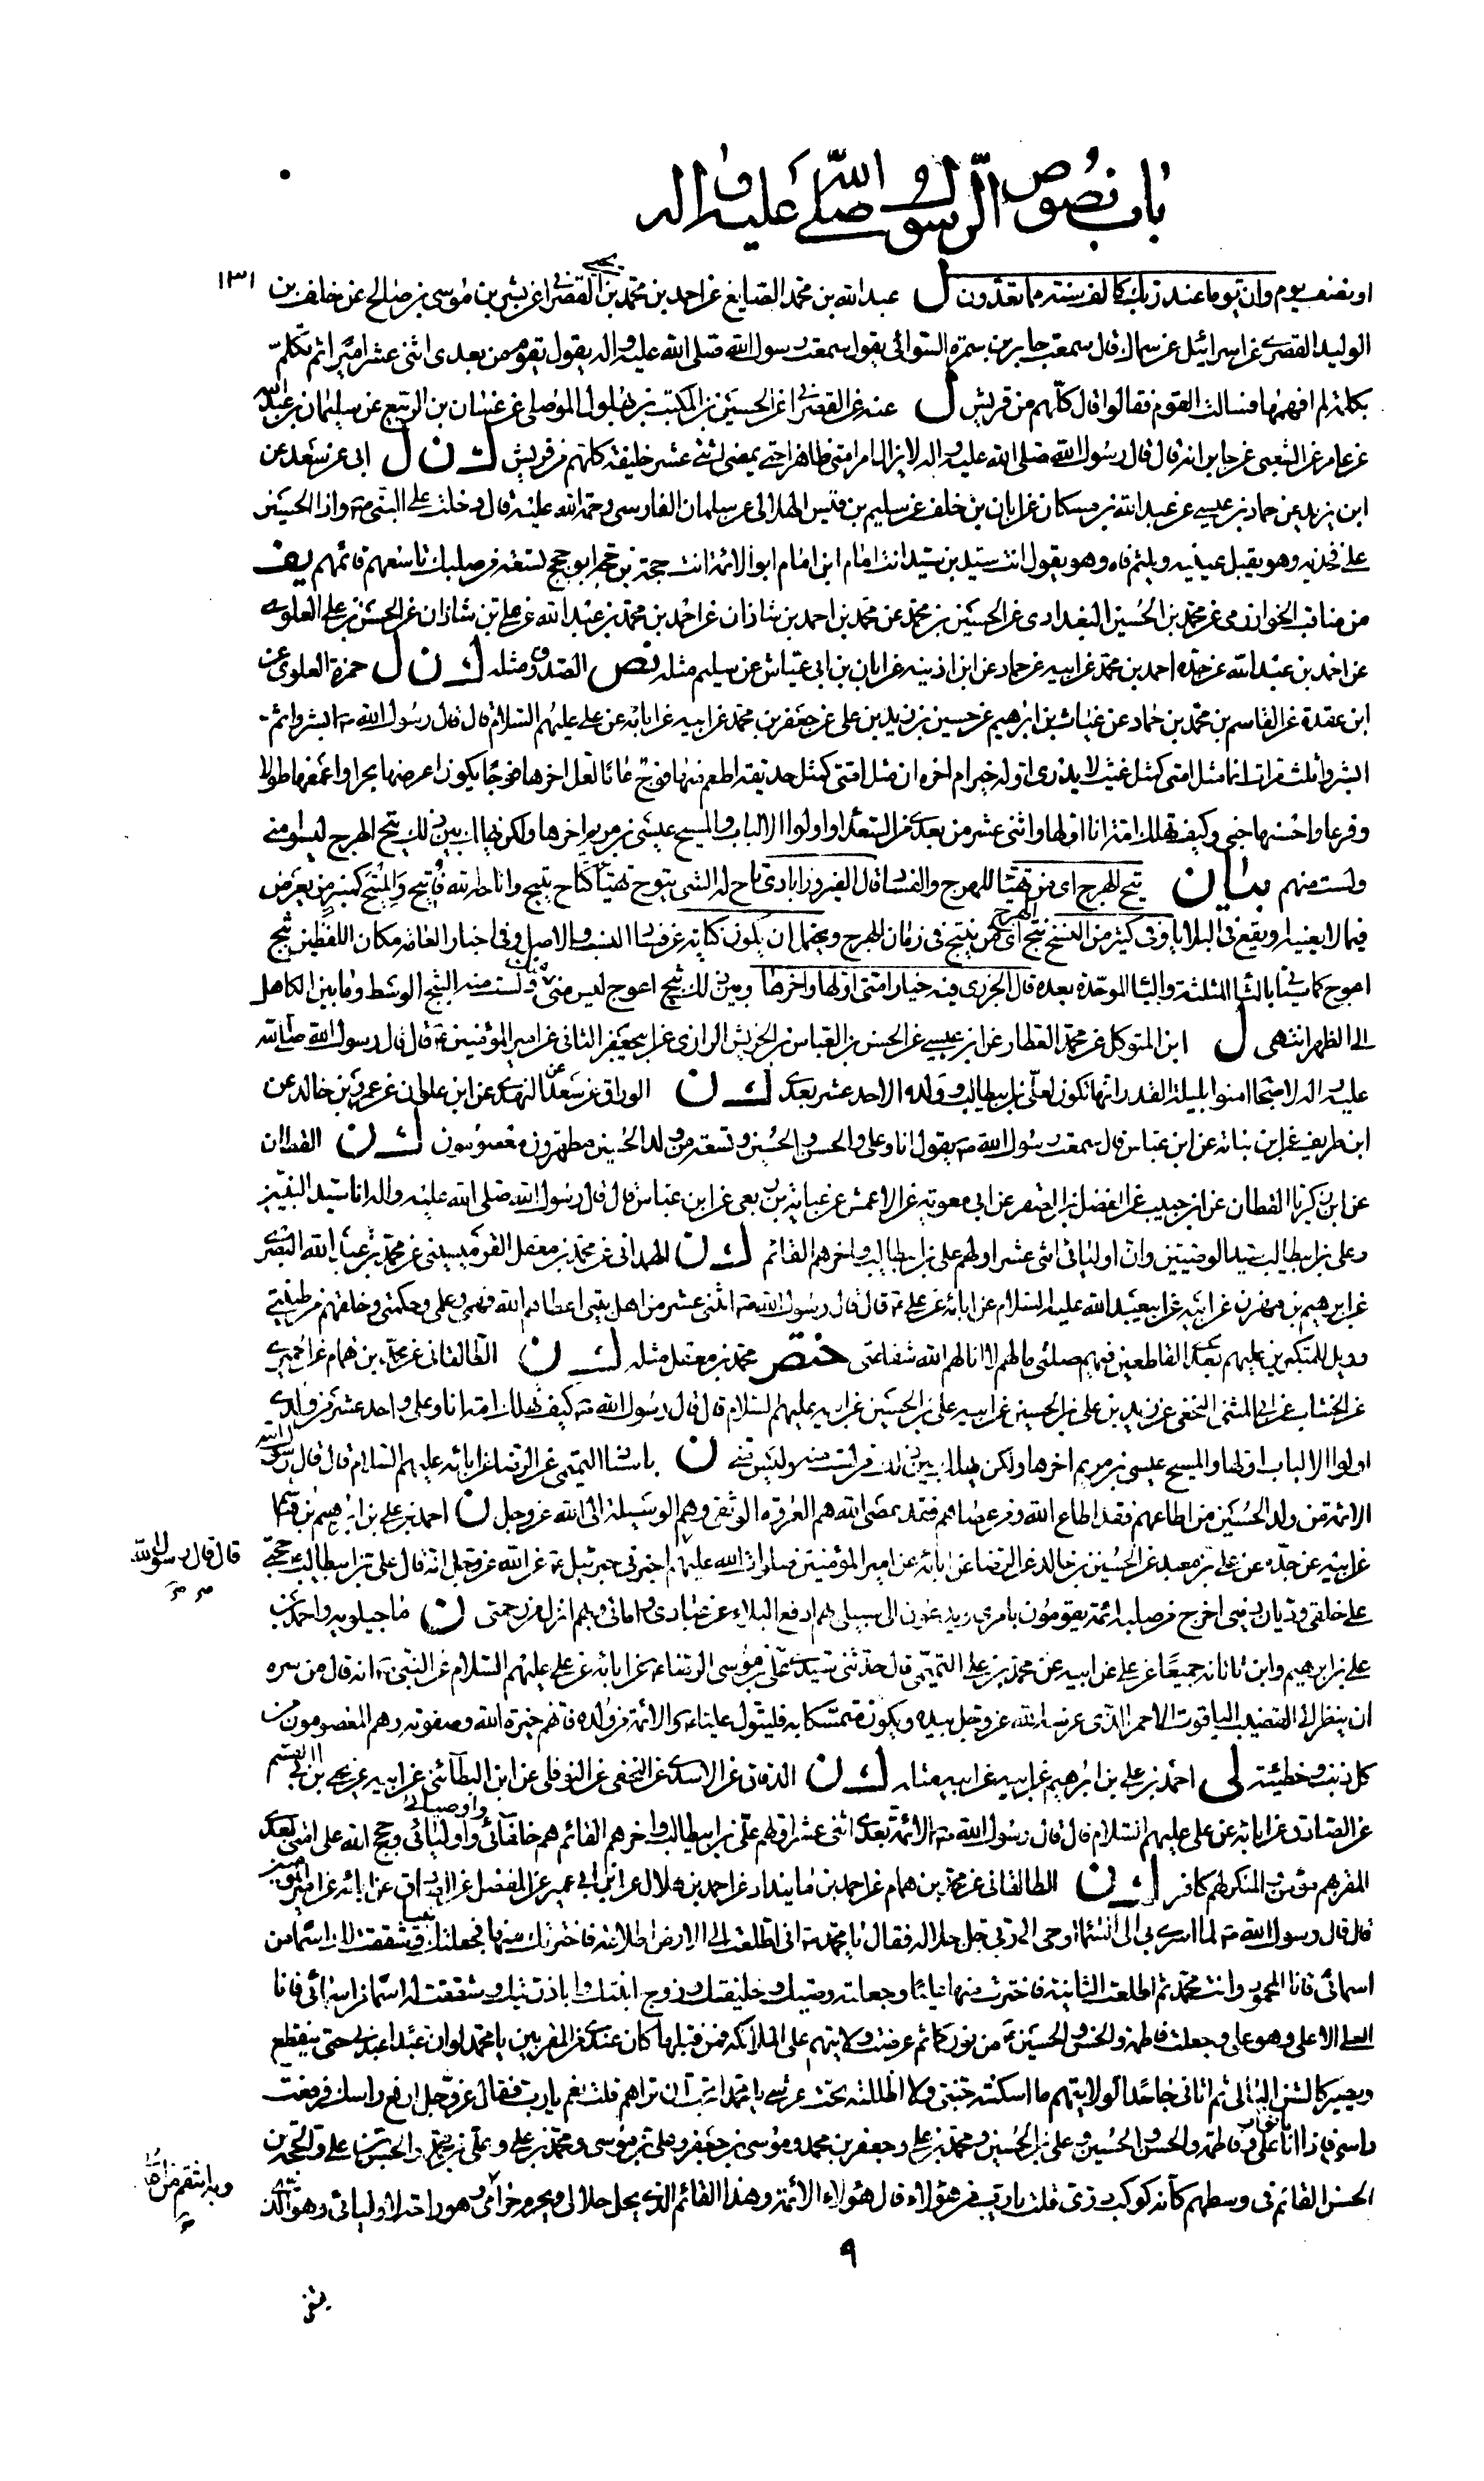 باب نصوص الرسول صلى الله عليه واله
١٣١
او بعض يوم وان يوما عند ربك كالف سنة مما تعدون ل عبدالله بن محمد الصايغ عن احمد بن محمد بن يحيى القصرانى عن بشر بن موسى بن صالح عن خلف بن
الوليد القصرى عن اسرائيل عن سماك قال سمعت جابر بن سمرة السوائى يقول سمعت رسول الله صلى الله عليه واله يقول يقوم من بعدى اثنى عشر اميرا ثم تكلم
بكلمة لم افهمها فسالت القوم فقالوا قال كلهم من قريش ل عنه عن القصرانى عن الحسين بن المكتب بن بهلول الموصلى عن غسان بن الربيع عن سليمان بن عبدالله
عن عامر عن الشعبى عن جابر انه قال قال رسول الله صلى الله عليه واله لا يزال امر امتى ظاهرا حتى يمضى اثنى عشر خليفة كلهم من قريش ك ن ل ابى عن سعد عن
ابن يزيد عن حماد بن عيسى عن عبدالله بن مسكان عن ابان بن خلف عن سليم بن قيس الهلالى عن سلمان الفارسى رحمة الله عليه قال دخلت على النبى ص واذا الحسين
على فخذيه وهو يقبل عينيه ويلثم فاه وهو يقول انت سيد بن سيد انت امام ابن امام ابو الائمة انت حجة بن حجة ابو حجج تسعة من صلبك تاسعهم قائمهم يف
من مناقب الخوارزمى عن محمد بن الحسين البغدادى عن الحسين بن محمد عن محمد بن احمد بن شاذان عن احمد بن محمد بن عبدالله عن على بن شاذان عن الحسن بن على العلوى
عن احمد بن عبدالله عن جده احمد بن محمد عن ابيه عن حماد عن ابن اذينة عن ابان بن ابى عياش عن سليم مثله نص الصدوق مثله ك ن ل حمزة العلوى عن
ابن عقدة عن القاسم بن محمد بن حماد عن غياث بن ابراهيم عن حسين بن زيد بن على عن جعفر بن محمد عن ابيه عن ابائه عن على عليهم السلام قال قال رسول الله ص ابشروا ثم
ابشروا ثلث مرات انما مثل امتى كمثل غيث لا يدرى اوله خير ام اخره ان مثل امتى كمثل حديقة اطعم منها فوج عاما لعل اخرها فوجا يكون اعرضها بحرا واعمقها طولا
وفرعا واحسنها جنى وكيف تهلك امة انا اولها واثنى عشر من بعدى من السعداء واولوا الالباب والمسيح عيسى بن مريم اخرها ولكن يهلك بين ذلك نتج الهرج ليسوا منى
ولست منهم بيان نتج الهرج اى من تهيئا للهرج والفساد قال الفيروزابادى تاح له الشى يتوح تهيئا كتاح يتيح واتاحه الله فاتيح والمتيح كمنبر من يعرض
فيما لا يعنيه او يقع فى البلايا وفى كثير من النسخ نتج الهرج اى من ينتج فى زمان الهرج ويحتمل ان يكون كناية عن فساد النسب والاصل وفى اخبار العامة مكان اللفظين ثبج
اعوج كما سياتى بالثاء المثلثة والباء الموحدة بعده قال الجزرى فيه خيار امتى اولها واخرها وبين ذلك ثبج اعوج ليس منى ولست منه الثبج الوسط وما بين الكاهل
الى الظهر انتهى ل ابن المتوكل عن محمد العطار عن ابن عيسى عن الحسن بن العباس بن الحريش الرازى عن ابى جعفر الثانى عن امير المؤمنين ع قال قال رسول الله صلى الله
عليه واله لاصحابه امنوا بليلة القدر انها تكون لعلى بن ابيطالب وولده الاحد عشر بعدى ك ن الوراق عن سعد عن النهدى عن ابن علوان عن عمرو بن خالد عن
ابن طريف عن ابن نباتة عن ابن عباس قال سمعت رسول الله ص يقول انا وعلى والحسن والحسين وتسعة من ولد الحسين مطهرون معصومون ك ن القطان
عن ابن زكريا القطان عن ابن حبيب عن الفضل بن الصقر عن ابى معوية عن الاعمش عن عباية بن ربعى عن ابن عباس قال قال رسول الله صلى الله عليه واله انا سيد النبيين
وعلى بن ابيطالب سيد الوصيين وان اوصيائى اثنى عشر اولهم على بن ابيطالب واخرهم القائم ك ن الهمدانى عن محمد بن معقل القرميسينى عن محمد بن عبدالله البصرى
عن ابرهيم بن مهزم عن ابيه عن ابيعبدالله عليه السلام عن ابائه عن على ع قال قال رسول الله ص اثنى عشر من اهل بيتى اعطاهم الله فهمى وعلمى وحكمتى وخلقهم من طينتى
وويل للمتكبرين عليهم بعدى القاطعين فيهم صلتى ما لهم لا انالهم الله شفاعتى ختص محمد بن معقل مثله ك ن الطالقانى عن محمد بن همام عن الحميرى
عن الخشاب عن ابى المثنى النخعى عن زيد بن على بن الحسين عن ابيه على بن الحسين عن ابيه عليهم السلام قال قال رسول الله ص كيف تهلك امة انا وعلى واحد عشر من ولدى
اولوا الالباب اولها والمسيح عيسى بن مريم اخرها ولكن يهلك بين ذلك من لست منه وليس منى ن باسناد التميمى عن الرضا عن ابائه عليهم السلام قال قال رسول الله
الائمة من ولد الحسين من اطاعهم فقد اطاع الله ومن عصاهم فقد عصى الله هم العروة الوثقى وهم الوسيلة الى الله عز وجل ن احمد بن على بن ابرهيم بن هاشم
عن ابيه عن جده عن على بن معبد عن الحسين بن خالد عن الرضا عن ابائه عن امير المؤمنين صلوات الله عليهم اخبرنى جبرئيل ع عن الله عز وجل انه قال على بن ابيطالب حجتى
قال قال رسول الله ص
على خلقى وديان دينى اخرج من صلبه ائمة يقومون بامرى ويدعون الى سبيلى بهم ادفع البلاء عن عبادى وامائى وبهم انزل من رحمتى ن ماجيلويه واحمد بن
على بن ابرهيم وابن تاتانه جميعا عن على عن ابيه عن محمد بن على التميمى قال حدثنى سيدى على بن موسى الرضا ع عن ابائه عن على عليهم السلام عن النبى ص انه قال من سره
ان ينظر الى القضيب الياقوت الاحمر الذى غرسه الله عز وجل بيده ويكون متمسكا به فليتول عليا ع والائمة من ولده فانهم خيرة الله وصفوته وهم المعصومون من
كل ذنب وخطيئة لى احمد بن على بن ابرهيم عن ابيه عن ابيه مثله ك ن الدقاق عن الاسدى عن النخعى عن النوفلى عن ابن البطائنى عن ابيه عن يحيى بن ابى القسم
عن الصادق عن ابائه عن على عليهم السلام قال قال رسول الله ص الائمة بعدى اثنى عشر اولهم على بن ابيطالب واخرهم القائم هم خلفائى واوصيائى واوليائى وحجج الله على امتى بعدى
المقر بهم مؤمن والمنكر لهم كافر ك ن الطالقانى عن محمد بن همام عن احمد بن مابنداد عن احمد بن هلال عن ابن ابى عمير عن المفضل عن الصادق عن ابائه عن امير المؤمنين
قال قال رسول الله ص لما اسرى بى الى السماء اوحى الى ربى جل جلاله فقال يا محمد انى اطلعت الى الارض اطلاعة فاخترتك منها فجعلتك نبيا وشققت لك اسما من
اسمائى فانا المحمود وانت محمد ثم اطلعت الثانية فاخترت منها عليا وجعلته وصيك وخليفتك وزوج ابنتك وابا ذريتك وشققت له اسما من اسمائى فانا
العلى الاعلى وهو على وجعلت فاطمة والحسن والحسين ع من نوركما ثم عرضت ولايتهم على الملائكة فمن قبلها كان عندى من المقربين يا محمد لو ان عبدا عبدنى حتى ينقطع
ويصير كالشن البالى ثم اتانى جاحدا لولايتهم ما اسكنته جنتى ولا اظللته تحت عرشى يا محمد اتحب ان تراهم قلت نعم يا رب فقال عز وجل ارفع راسك فرفعت
راسى فاذا انا بانوار على وفاطمة والحسن والحسين وعلى بن الحسين ومحمد بن على وجعفر بن محمد وموسى بن جعفر وعلى بن موسى ومحمد بن على وعلى بن محمد والحسن بن على والحجة بن
الحسن القائم فى وسطهم كانه كوكب درى قلت يا رب من هؤلاء قال هؤلاء الائمة وهذا القائم الذى يحل حلالى ويحرم حرامى وهو راحة لاوليائى وهو الذى
وبه انتقم من اعدائى
٩
يشفى